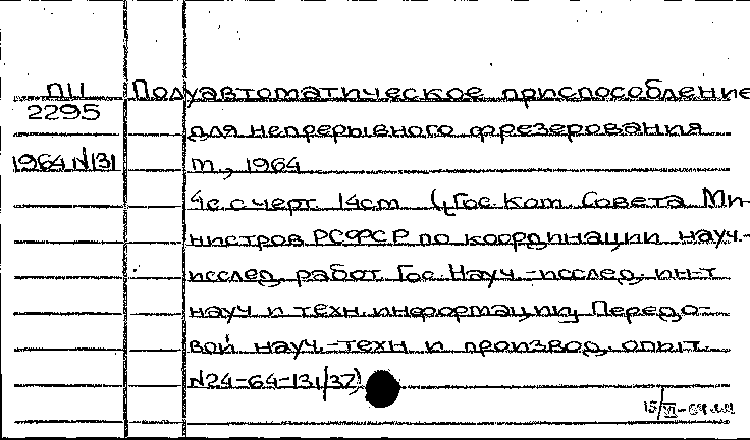 ПИ Полуавтоматическое приспособление
2295
для непрерывного фрезерования
1964 N131 М., 1964
4с. с черт. 14см (Гос. Ком. Совета Ми-
нистров РСФСР по координации науч.-
исслед. работ Гос. Науч.-исслед. ин-т
науч и техн. информации, Передо-
вой науч.-техн и производ. опыт.
N24-64-131/37)
15/VI-64